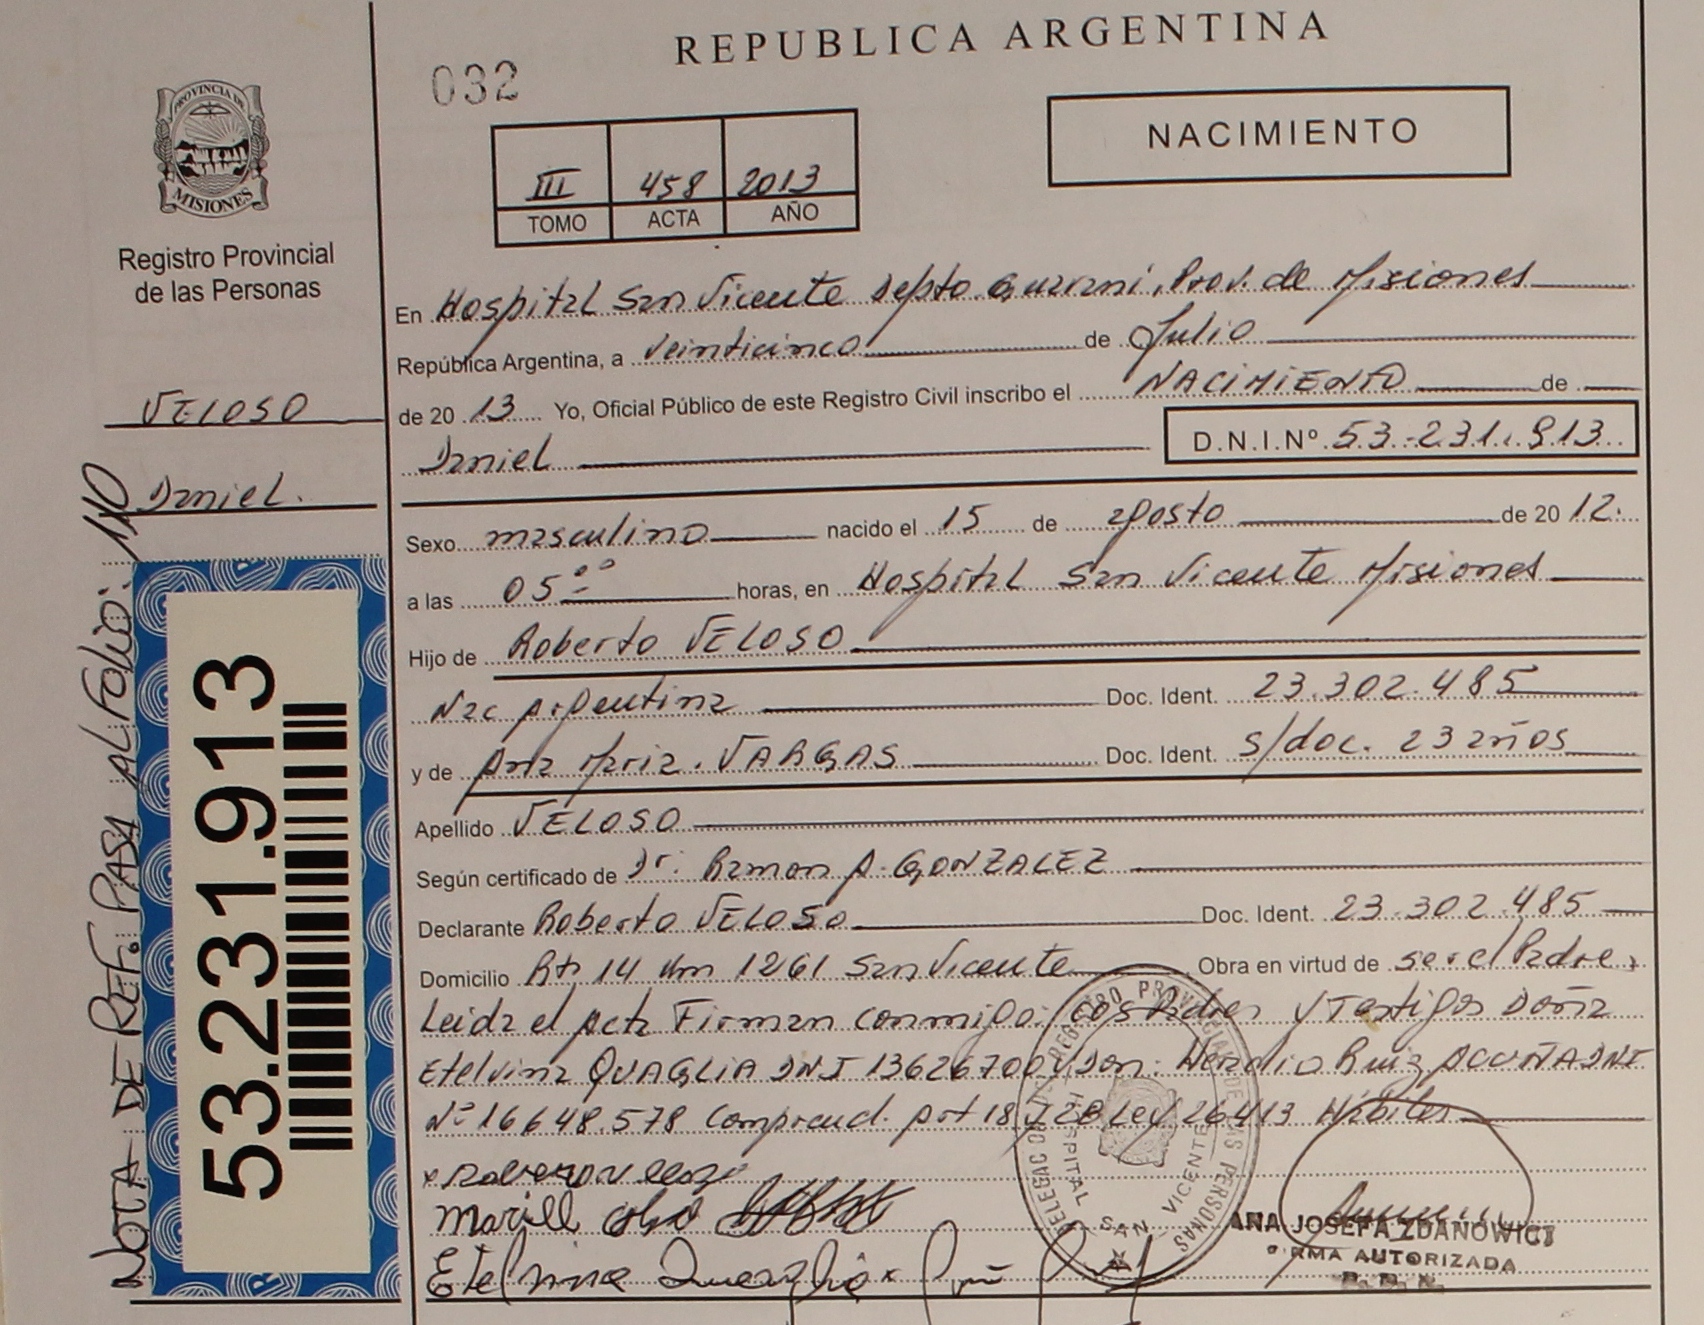 REPUBLICA ARGENTINA
032
NACIMIENTO
III 458 2013
TOMO ACTA AÑO
PROVINCIA DE
MISIONES
Registro Provincial
de las Personas
VELOSO
Daniel.
NOTA DE REF. PASA AL FOLIO: 110
53.231.913
En Hospital San Vicente depto. Guarani, Prov. de Misiones
República Argentina, a veinticinco de Julio
de 20 13 Yo, Oficial Público de este Registro Civil inscribo el NACIMIENTO de
Daniel D.N.I.Nº 53.231.913
Sexo masculino nacido el 15 de agosto de 20 12.
a las 05 00 horas, en Hospital San Vicente Misiones
Hijo de Roberto VELOSO
Nac Argentina Doc. Ident. 23.302.485
y de Ana Maria. VARGAS Doc. Ident. s/doc. 23 años
Apellido VELOSO
Según certificado de Dr. Ramon A. GONZALEZ
Declarante Roberto VELOSO Doc. Ident. 23.302.485
Domicilio Rta 14 km 1261 San Vicente Obra en virtud de ser el Padre,
Leida el acta Firman conmigo: los Padres y Testigos Doña
Etelvina QUAGLIA DNI 13626700 y Don: Ruiz ACUÑA DNI
Nº 16648.578 Comprend. art 18 y 28 Ley 26413 Hábiles
Etelvina Quaglia
REGISTRO PROVINCIAL DE LAS PERSONAS
HOSPITAL SAN VICENTE
ANA JOSEFA ZDANOWICZ
FIRMA AUTORIZADA